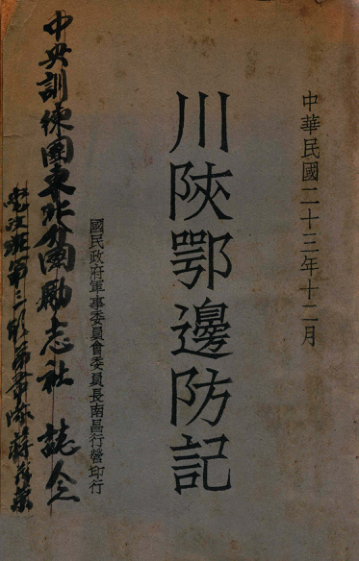 中華民國二十三年十二月
川陝鄂邊防記
國民政府軍事委員會委員長南昌行營印行
中央訓練團東北分團勵志社 誌念
第三